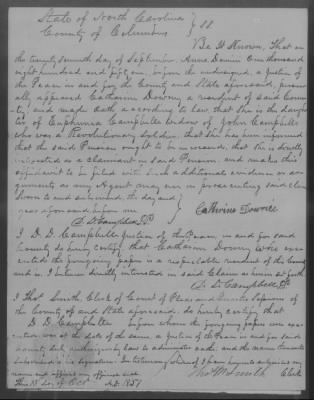 State of North Carolina } SS.
County of Columbus
Be it Known, That on
the twenty seventh day of September Anno Domini One thousand
eight hundred and fifty one, before the undersigned, a Justice of
the Peace in and for the County and State aforesaid, person-
ally appeared Catharin Downy a resident of said Coun-
ty, and made oath according to law, that she is the daugh-
ter of Euphemia Campbell widow of John Campbell
who was a Revolutionary Soldier, that she has been informed
that the said Pension ought to be increased, that she is directly
interested as a claimant in said Pension, and makes this
affidavit to be filed with such additional evidence or ar-
guments as my Agent may use in prosecuting said claim
Sworn to and subscribed the day and
year aforesaid before me
D. D. Campbell JP
Catherine Downie
I D. D. Campbell Justice of the Peace, in and for said
County do hereby certify that Catharin Downy who exe-
cuted the foregoing paper is a respectable resident of the County
and is I believe directly interested in said Claim as herein set forth
D. D. Campbell JP
I Thos Smith, Clerk of Court of Pleas and Quarter Sessions of
the County of and State aforesaid, do hereby certify that
D. D. Campbell before whom the foregoing papers were exe-
cuted was at the date of the same, a Justice of the Peace in and for said
county duly authorized by law to administer oaths, and the name
subscribed is his signature. In testimony whereof I have hereunto subscribed my
name and
This 18 day of Oct A.D. 1851
Thos Smith Clerk